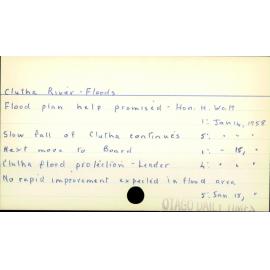 Clutha River - Floods
Flood plan help promised - Hon. H. Watt
1: Jan 14, 1958
Slow fall of Clutha continues 5: " " "
Next move to Board 1: " 15, "
Clutha flood protection - Leader 4: " " "
No rapid improvement expected in flood area
5: Jan 15, "
OTAGO DAILY TIMES